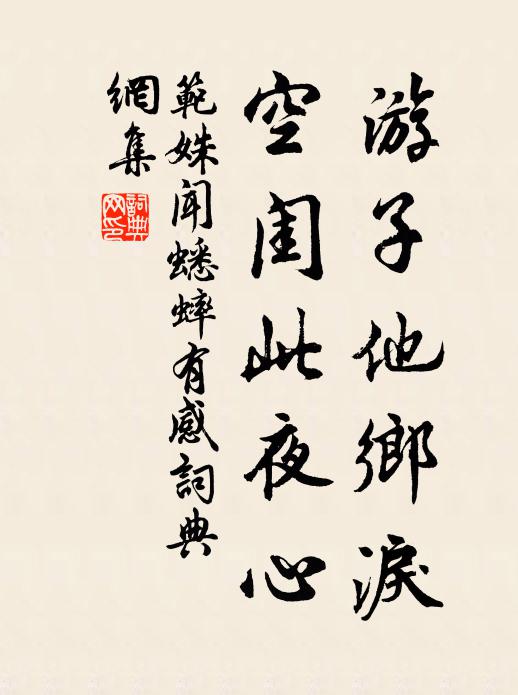 游子他鄉淚
空閨此夜心
範姝聞蟋蟀有感詞典
網集
詞典
网印